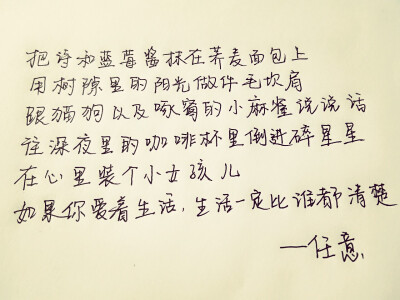 把诗和蓝莓酱抹在荞麦面包上
用树隙里的阳光做件毛坎肩
跟猫狗以及啄窗的小麻雀说说话
往深夜里的咖啡杯里倒进碎星星
在心里装个小女孩儿
如果你爱着生活，生活一定比谁都清楚
——任意